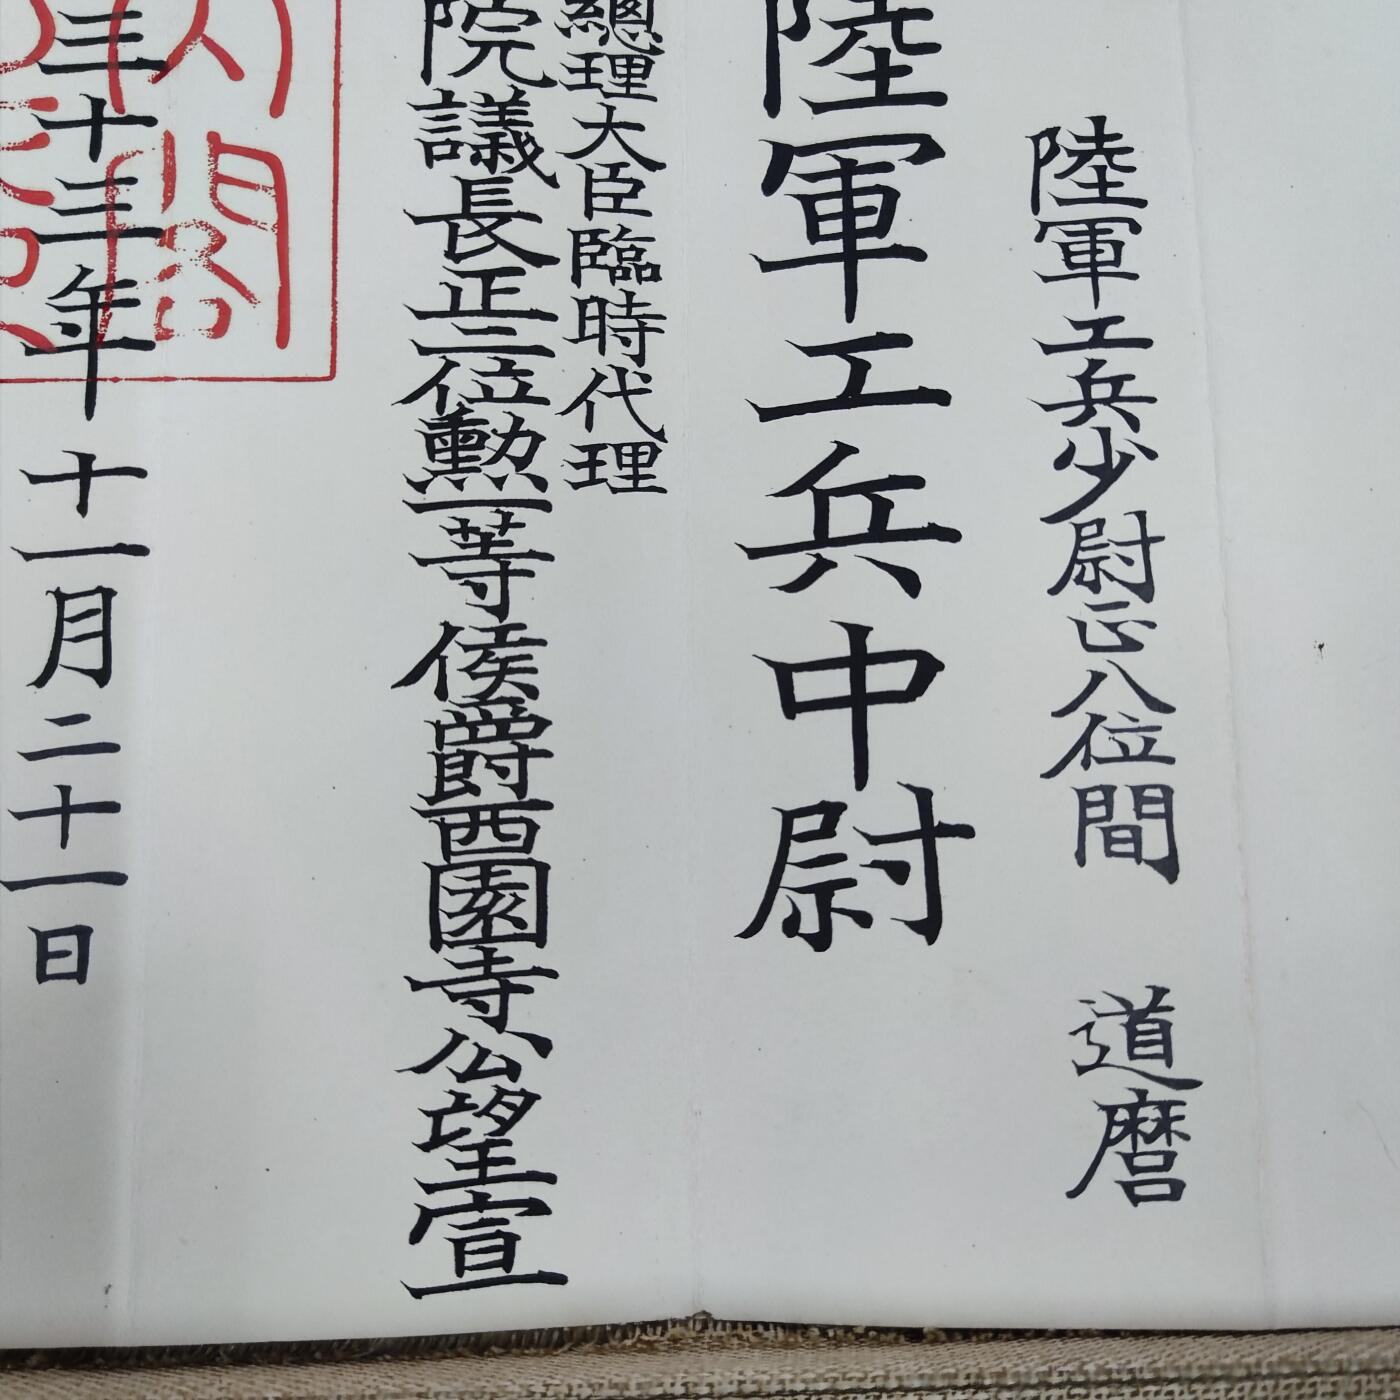 陸軍工兵少尉正八位間 道麿
陸軍工兵中尉
總理大臣臨時代理
院議長正二位勲一等侯爵西園寺公望宣
三十三年十一月二十一日
內閣